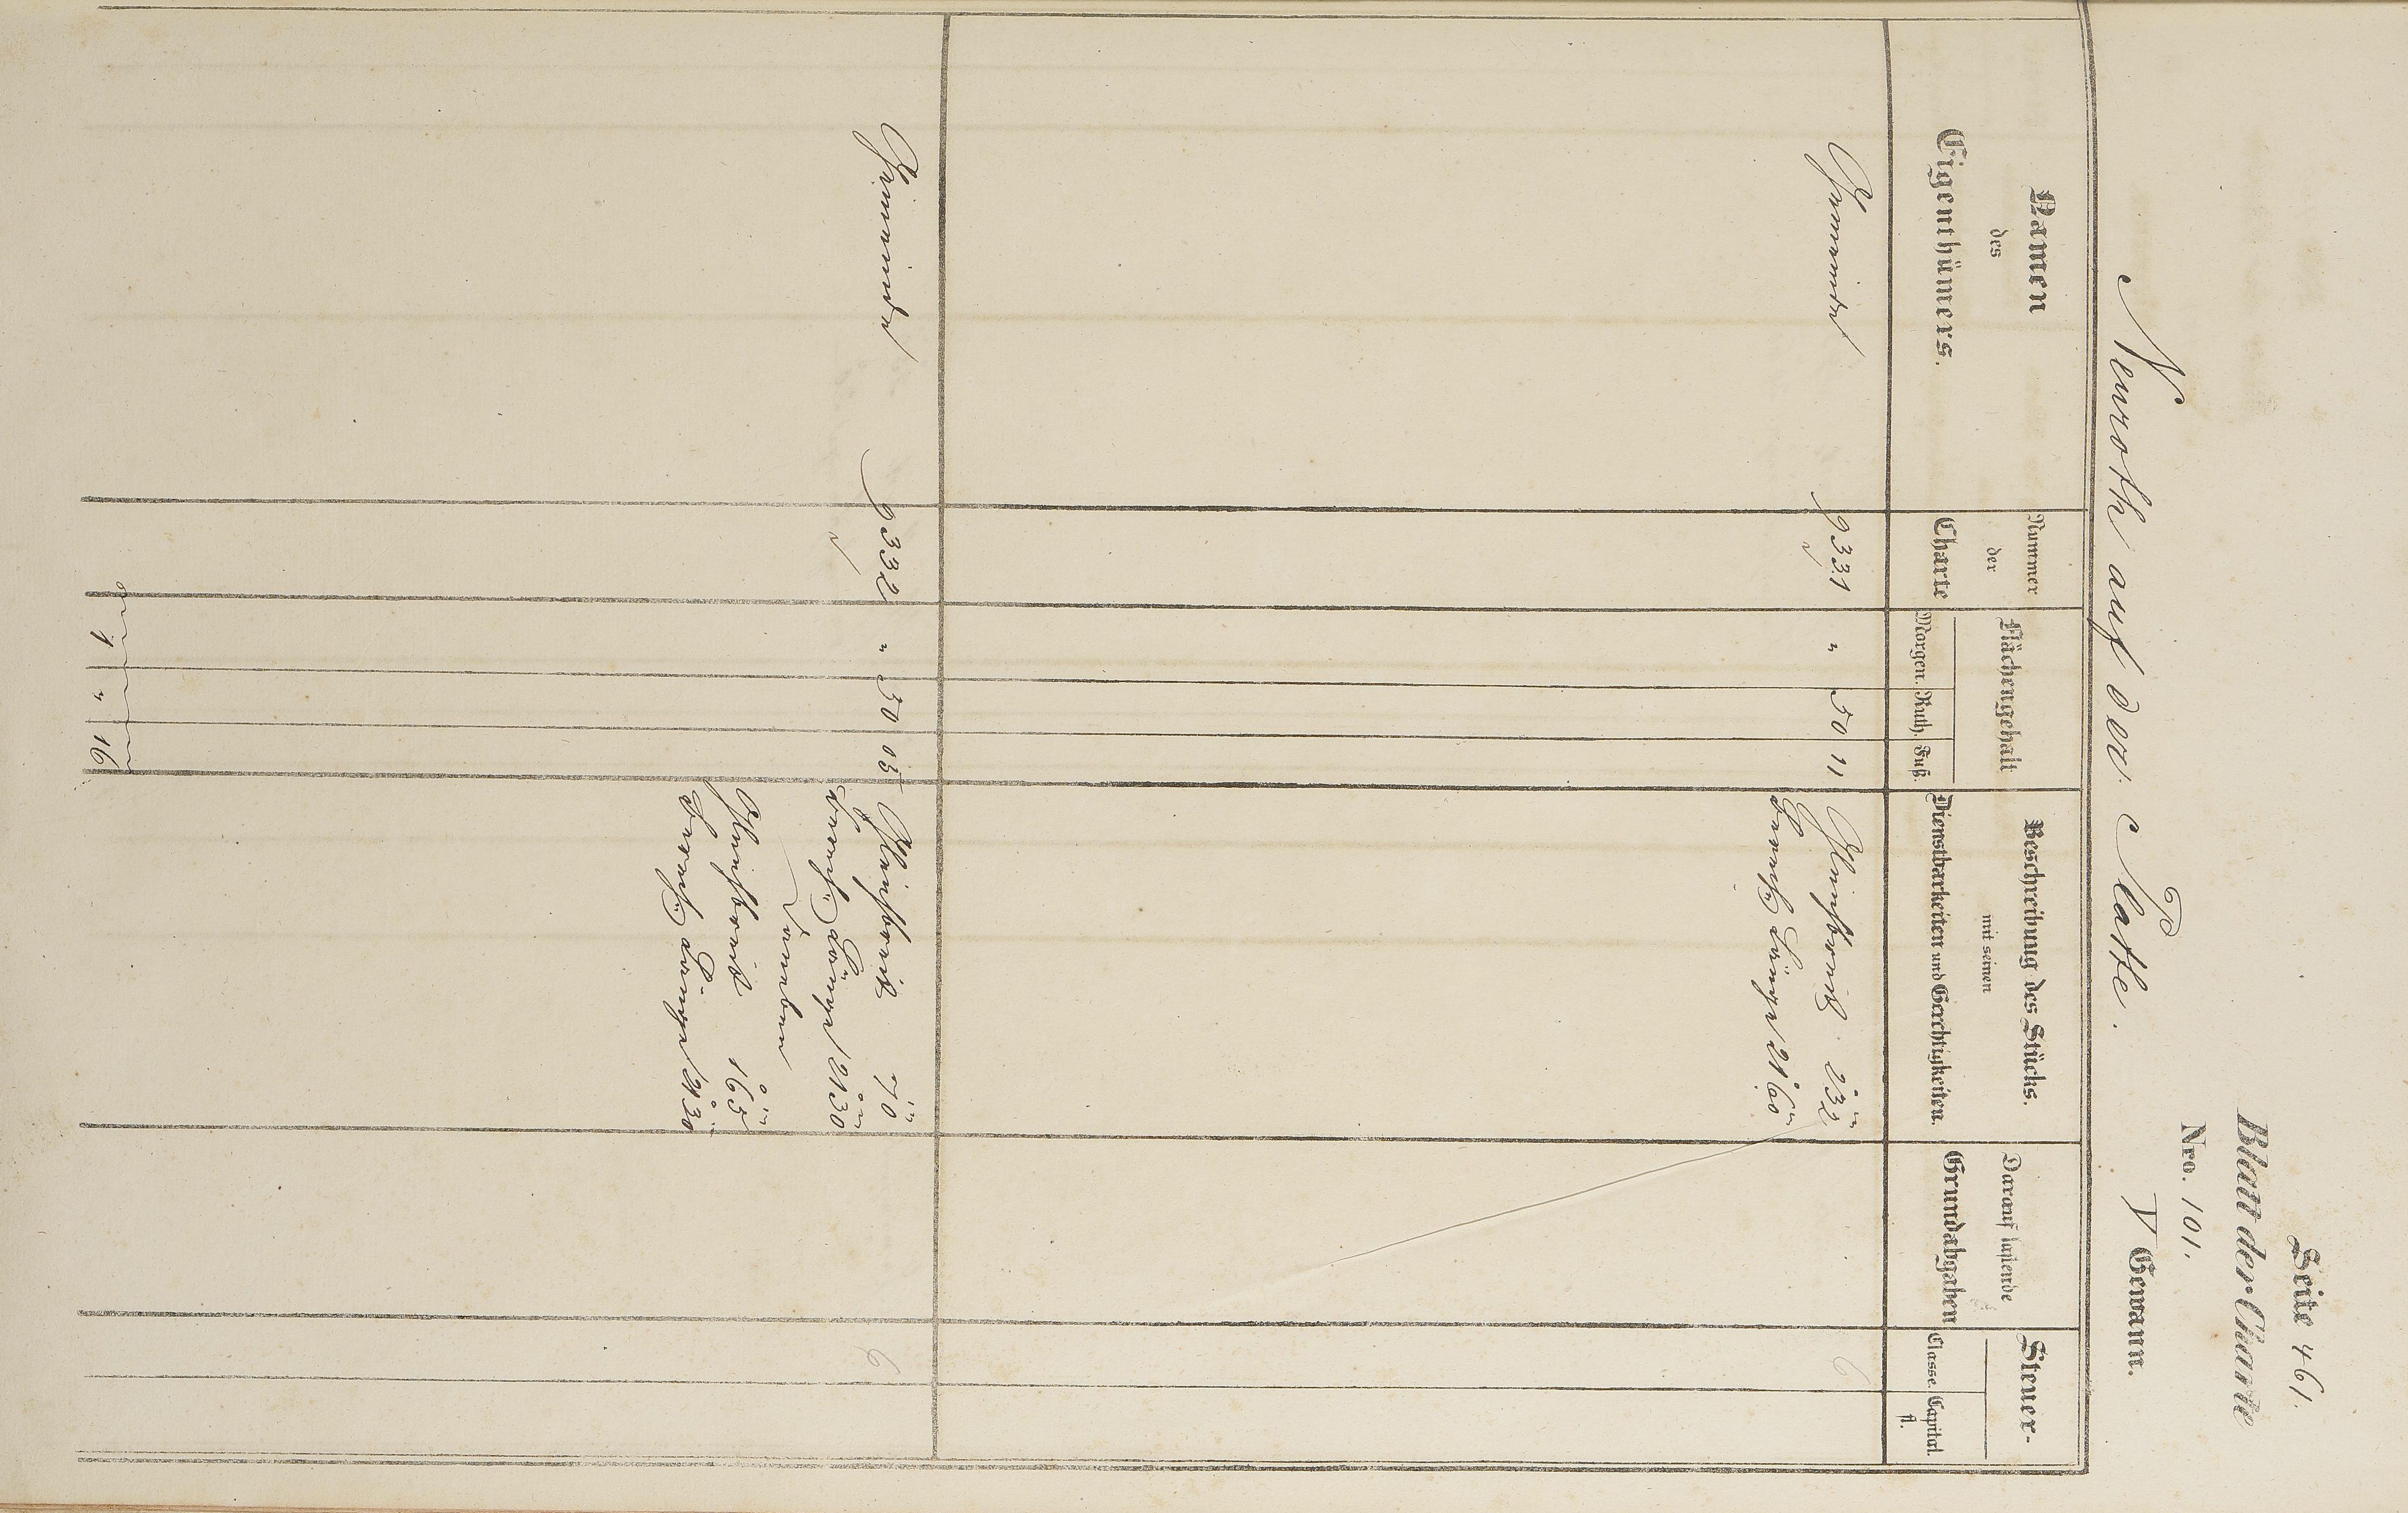 Seite 461.
Blatt der Charte
Nro. 101.
Neuroth auf der Platte.
V Gewann.
Namen
des
Eigenthümers.
Nummer
der
Charte
Flächengehalt
Morgen. Ruth. Fuß.
Beschreibung des Stücks.
mit seinen
Dienstbarkeiten und Gerechtigkeiten.
Darauf haftende
Grundabgaben
Steuer-
Classe. Capital.
fl.
Gemeinde 9331 " 50 11 Gleichbreit 232
Durchs. Länge 2160
6
Gemeinde 9332 " 50 05 Gleichbreit 70
Durchs. Länge 2130
daneben
Gleichbreit 165
Durchs. Länge 2130
6
1 " 16